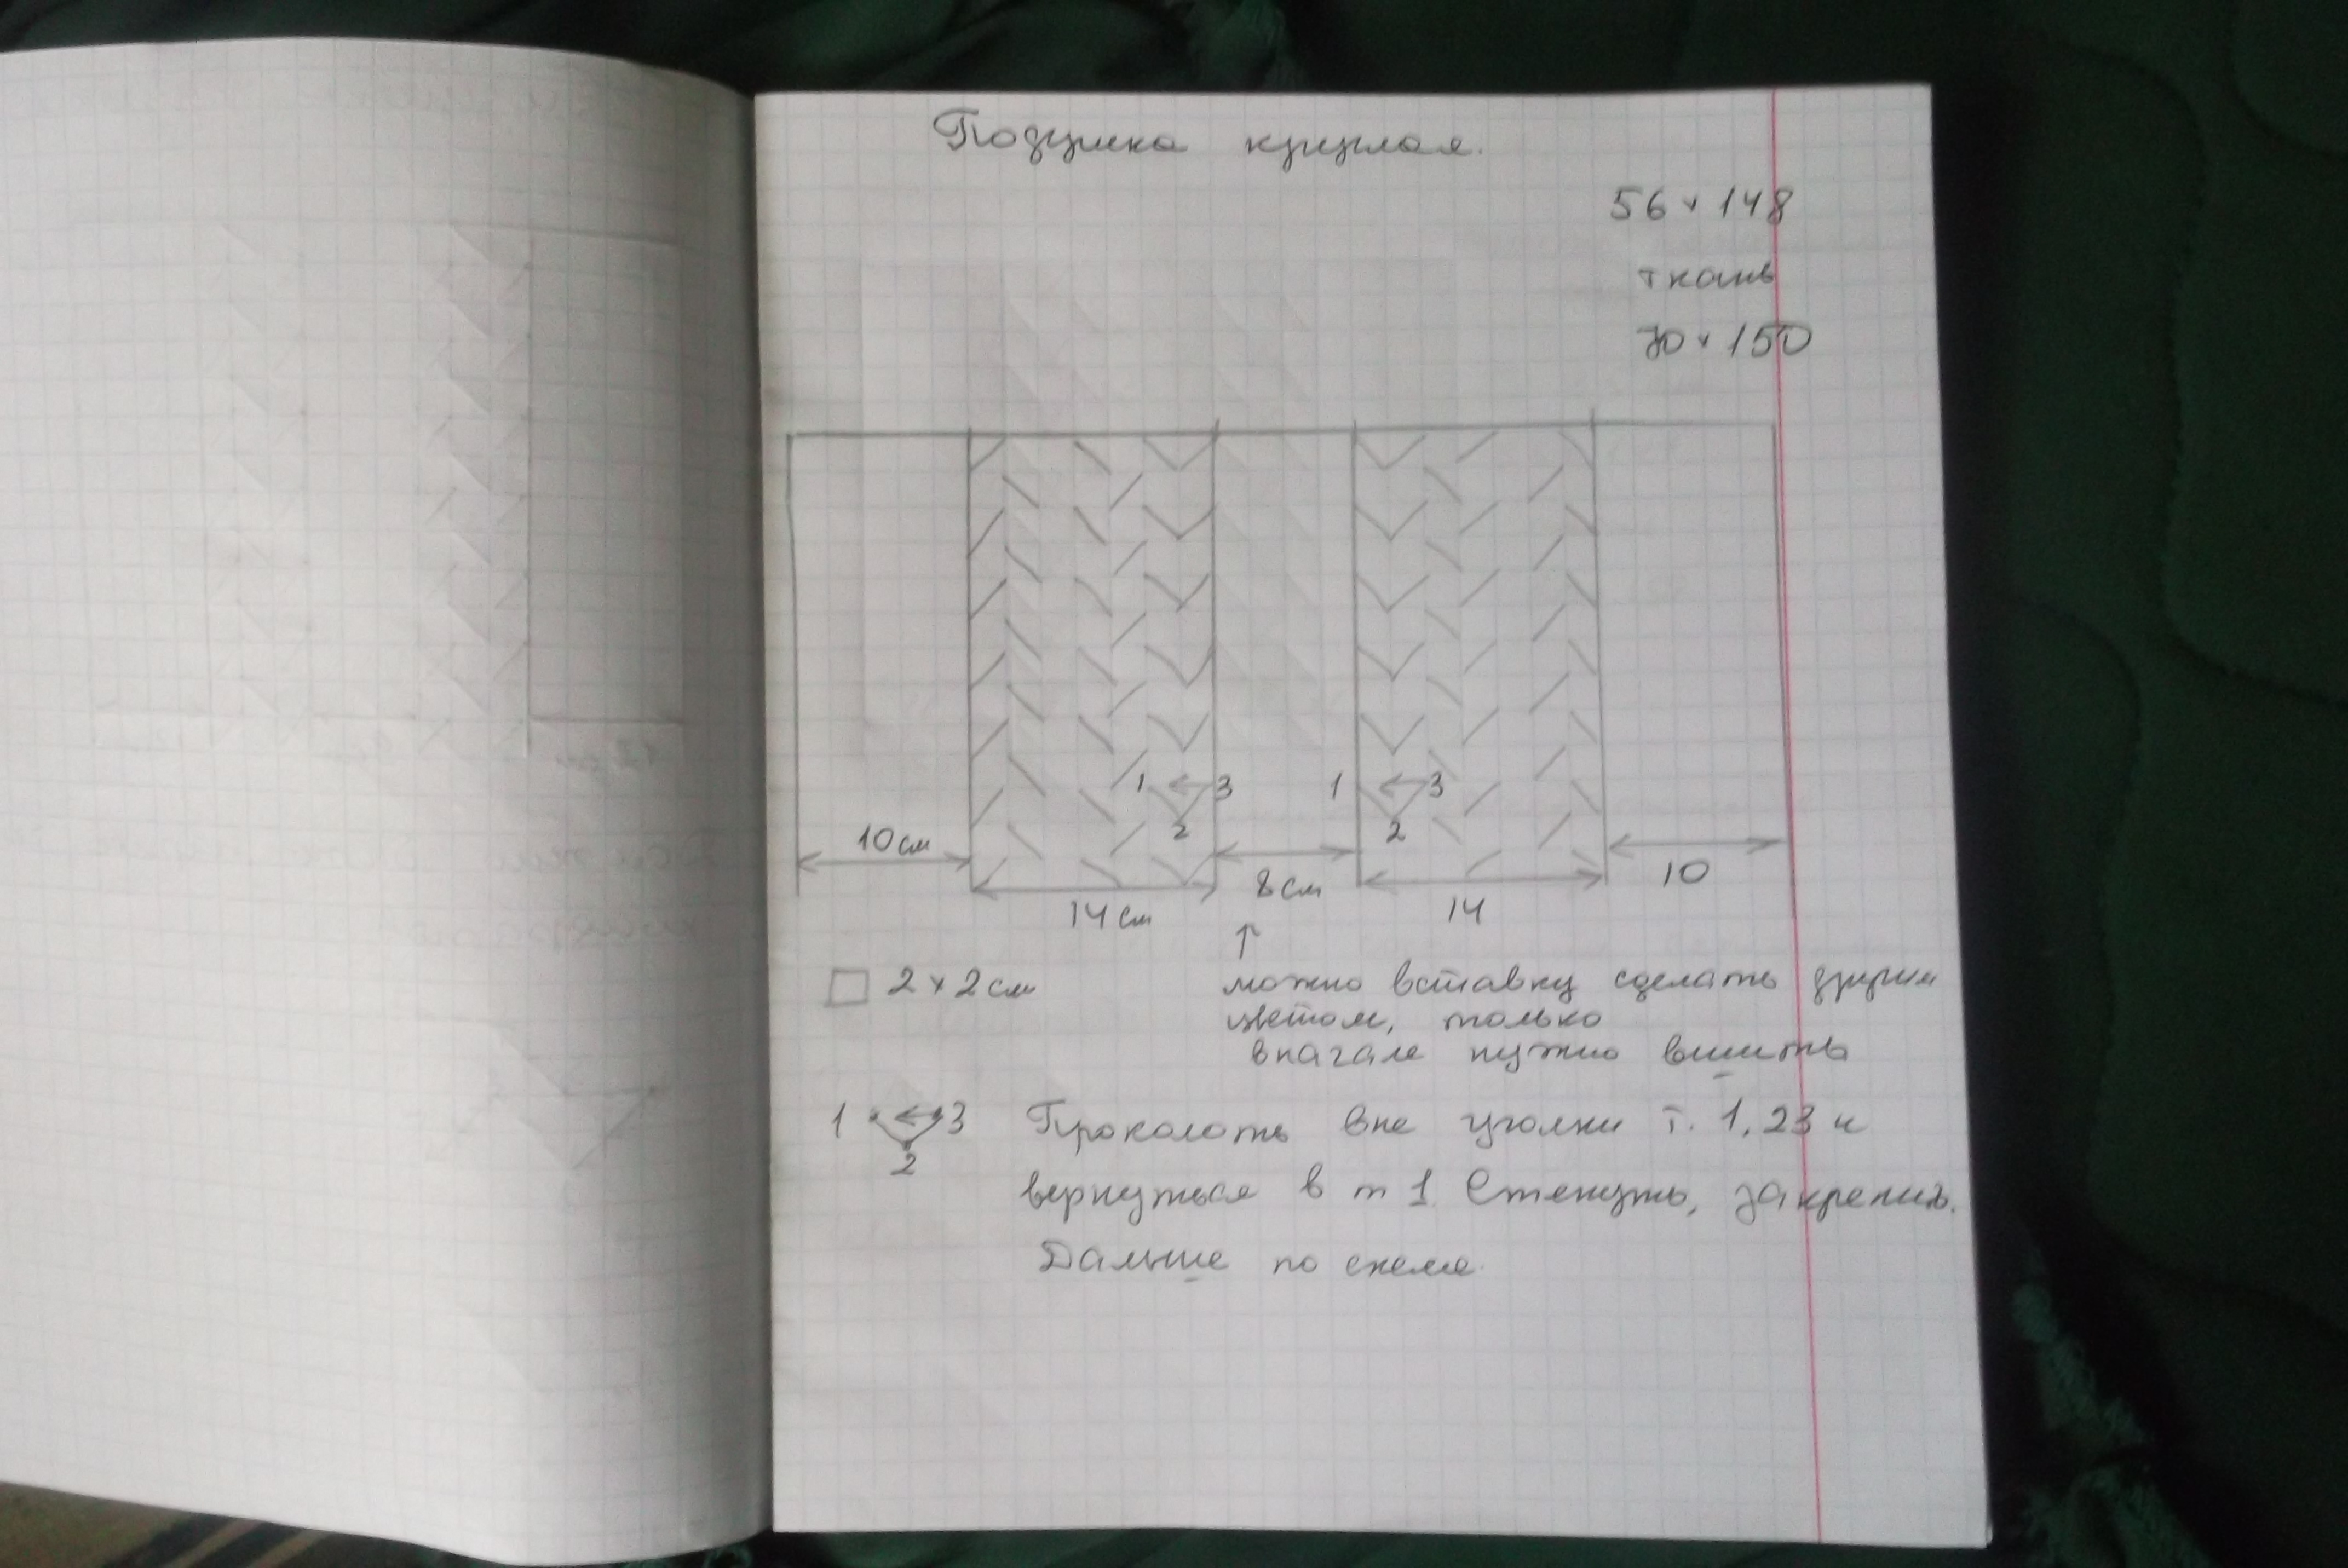 Подушка круглая.
56 x 148
ткань
70 x 150
1 ← 3
2
1 ← 3
2
10 см
14 см
8 см
14
10
↑
2 x 2 см
можно вставку сделать другим
цветом, только
вначале нужно вшить
1 ← 3
2
Проколоть вне уголки т. 1, 23 и
вернуться в т 1. Стянуть, закрепить.
Дальше по схеме.